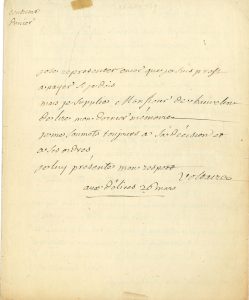 jose representer encor que je suis prest
a payer si je dois
mais je suplie Monsieur de chauvelin
de lire mon dernier mémoire
je me soumets toujours a sa decision et
a ses ordres
je luy présente mon respect
Voltaire
aux délices 26 mars